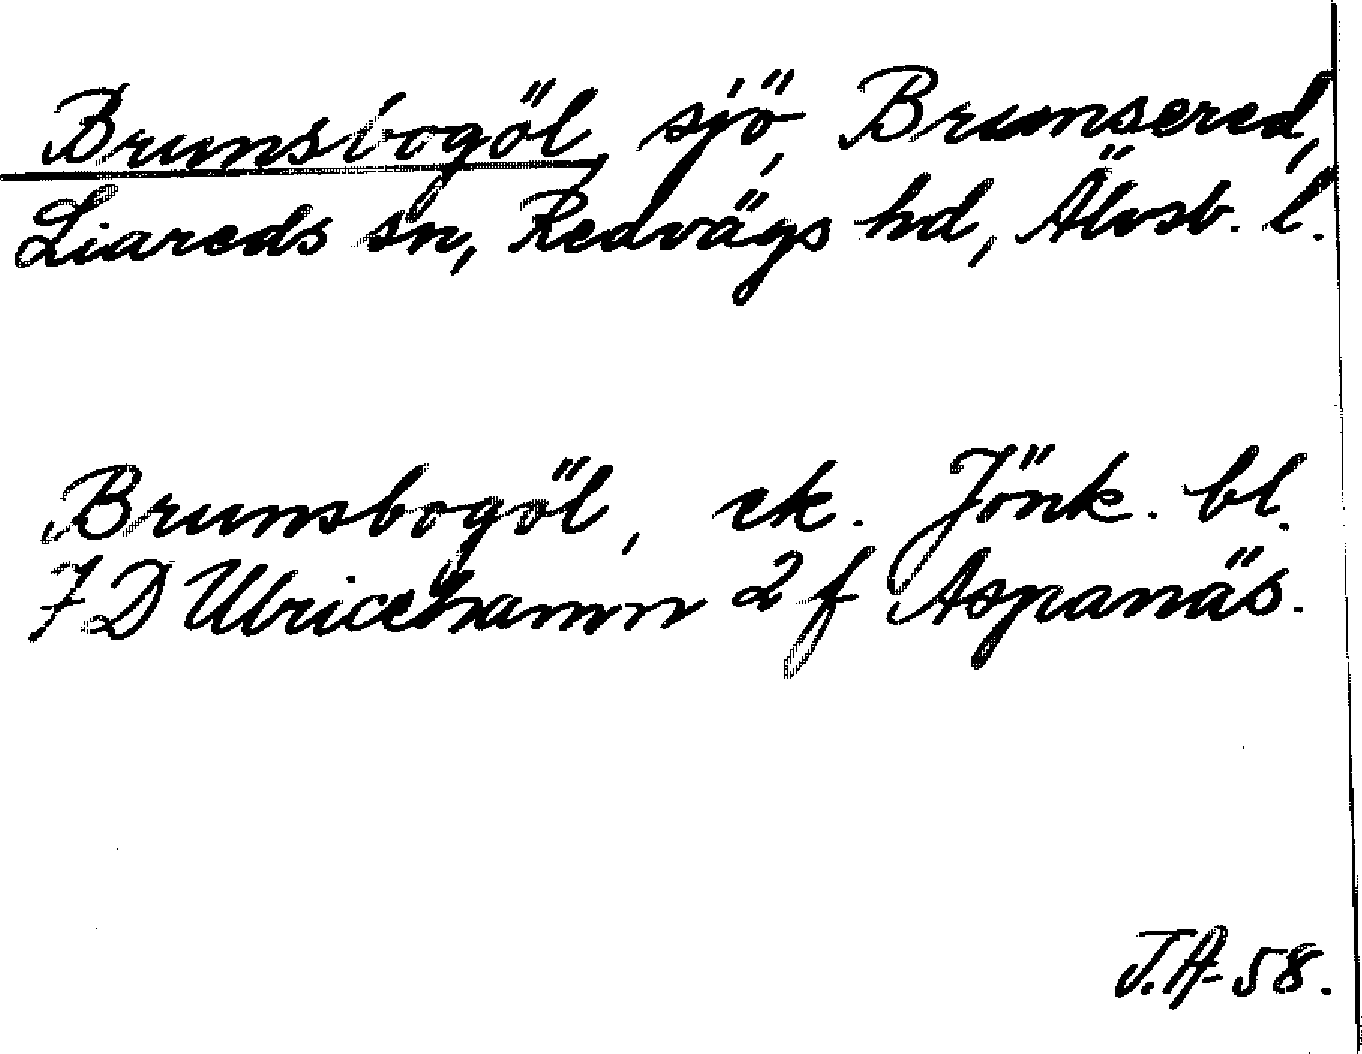 Brunsbogöl, sjö, Brunsered,
Liareds sn, Redvägs hd, Älvsb. l.
Brunsbogöl, ek. Jönk. bl.
7 D Ulricehamn 2 f Aspanäs.
J.A-58.